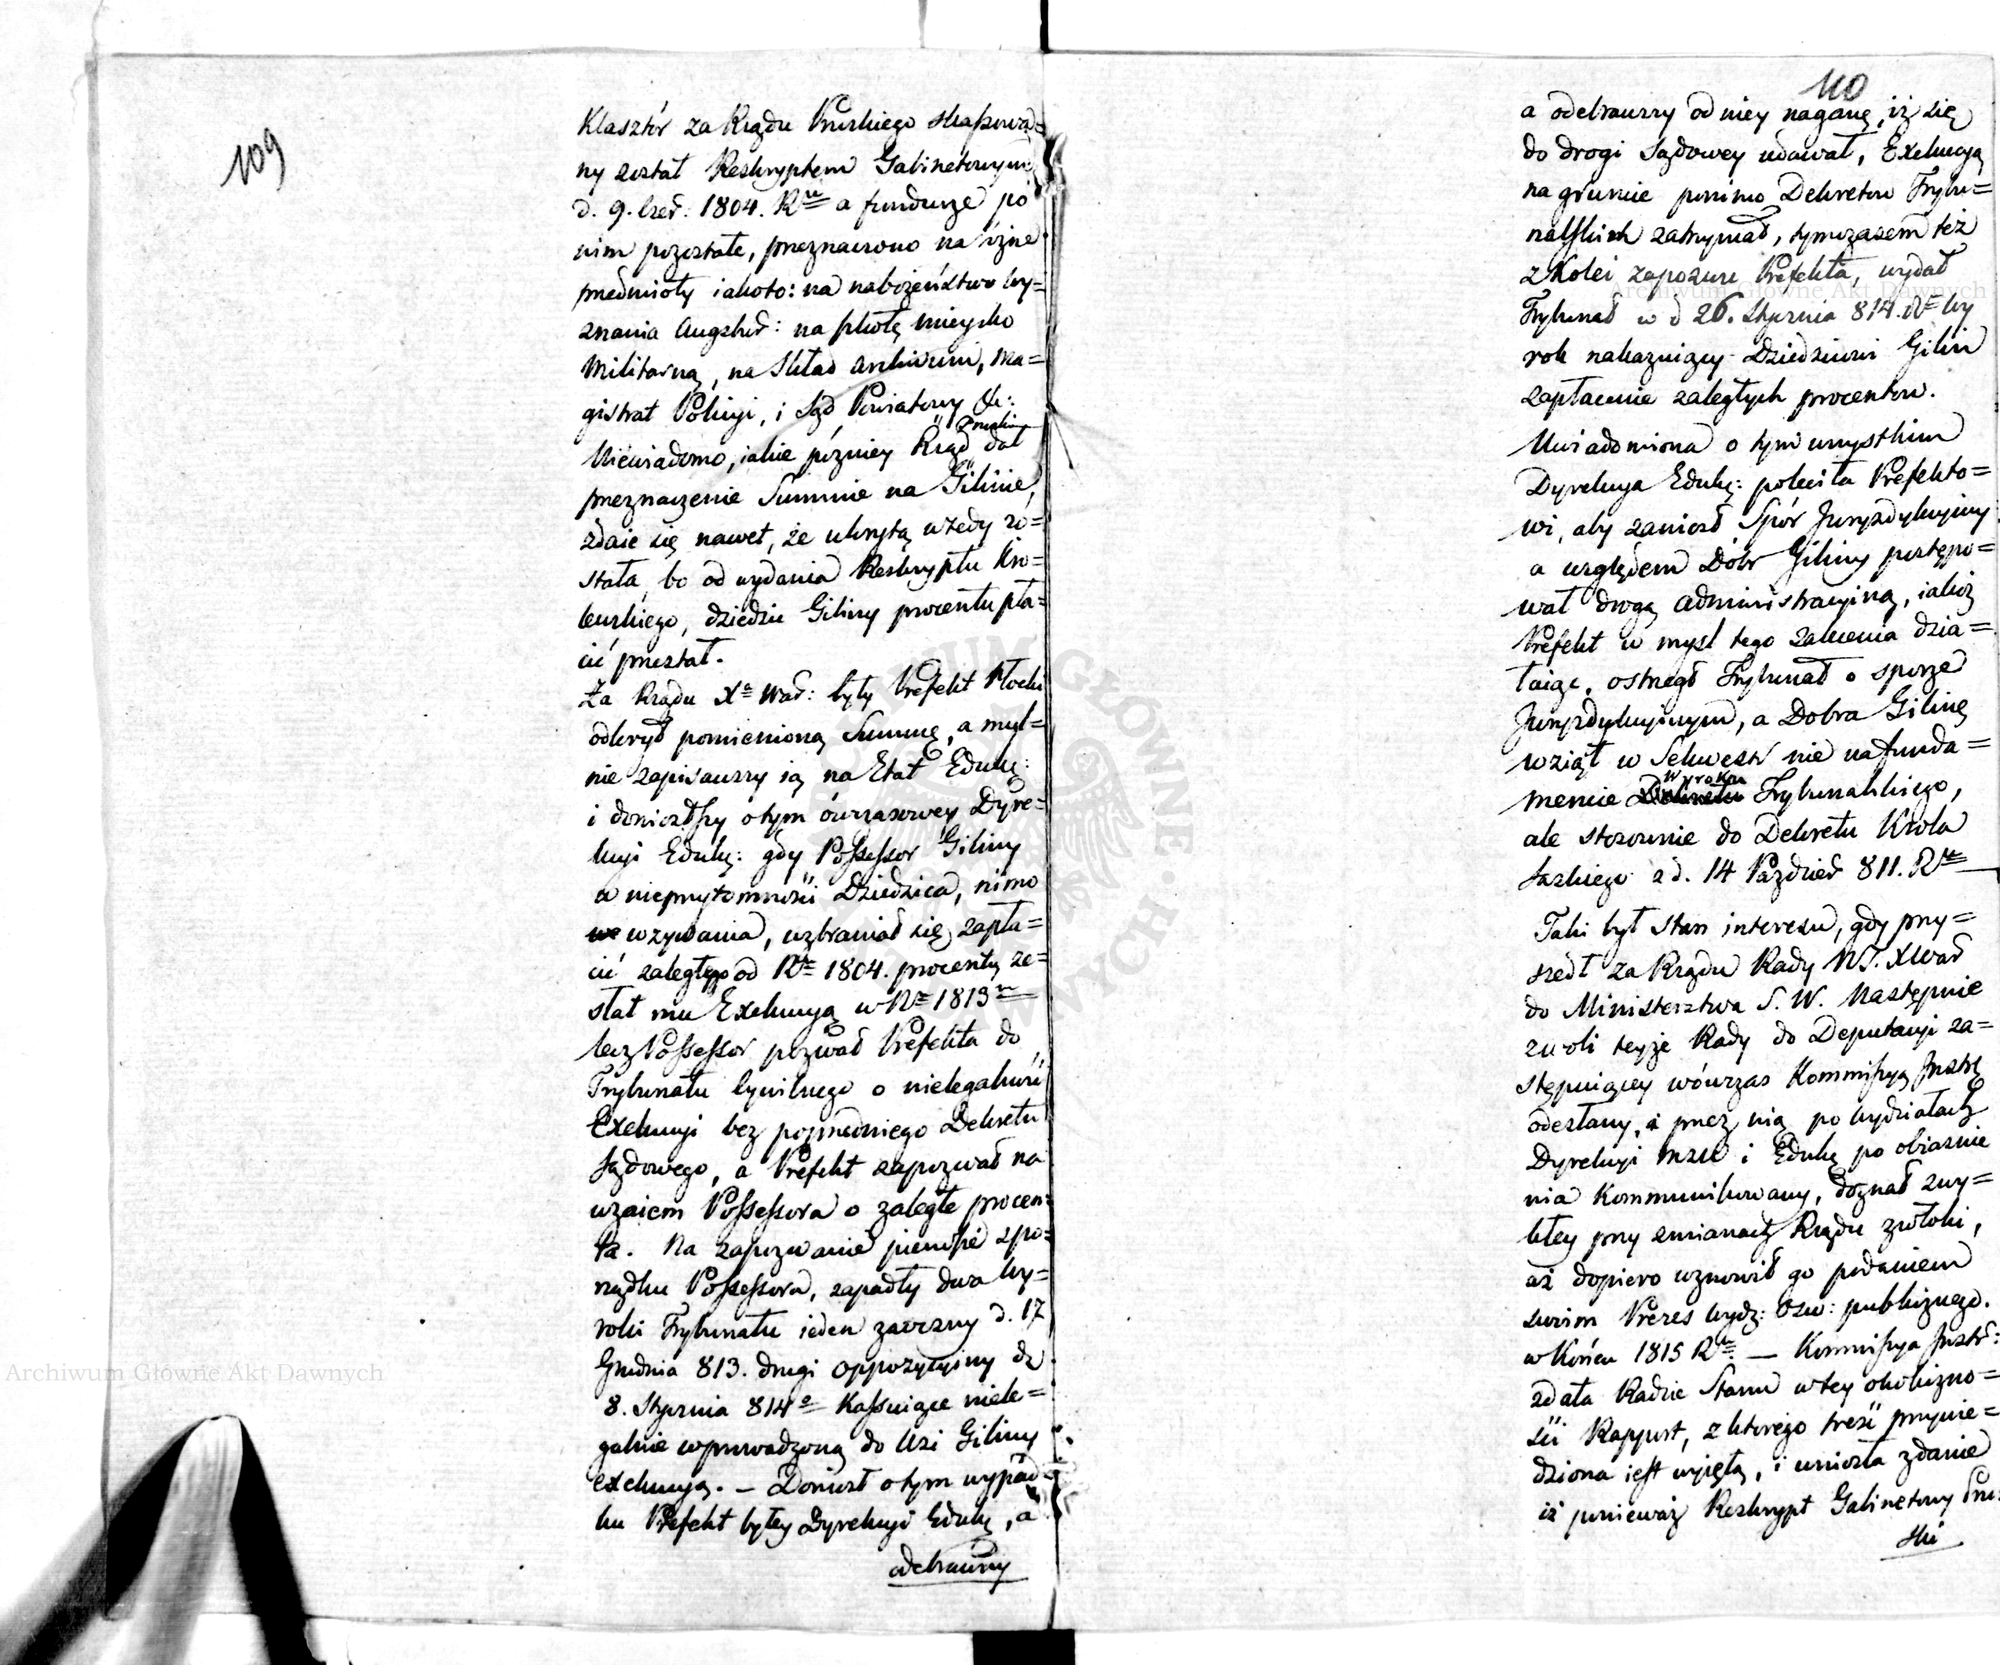 109
Klasztór za Rządu Pruskiego skassowa=
ny został Reskryptem Gabinetowym
d. 9. Czer: 1804. Ru a fundusze po
nim pozostałe, przeznaczono na różne
przedmioty iakoto: na nabożeństwo wy=
znania Augsbur: na szkołę mieysko
Militarną, na Skład Archiwum, Ma=
gistrat Policyi, i Sąd Powiatowy &c:
Niewiadomo, iakie pózniey Rząd Pruski dał
przeznaczenie Summie na Gilinie,
zdaie się nawet, że ukrytą wtedy zo=
stała, bo od wydania Reskryptu Kró=
lewskiego, dziedzic Giliny procentu pła=
cić przestał.
Za Rządu Xa War: były Prefekt Płocki
odkrył pomienioną Summę, a myl=
nie zapisawszy ią na Etat Eduk:
i doniosłszy o tym ówczasowey Dyre=
kcyi Eduk: gdy Possessor Giliny
w nieprzytomności Dziedzica, mimo
wezwania, wzbraniał się zapła=
cić zaległego od Ru 1804. procentu, ze=
słał mu Exekucyą w Ru 1813m
lecz Possessor pozwał Prefekta do
Trybunału Cywilnego o nielegalność
Exekucyi bez poprzedniego Dekretu
Sądowego, a Prefekt zapozwał na
wzaiem Possessora o zaległe procen=
ta. Na zapozwanie pierwsze z po=
rządku Possessora, zapadły dwa Wy=
roki Trybunału ieden zaoczny d. 17
Grudnia 813. drugi oppozycyiny d.
8. Stycznia 814o Kassuiące niele=
galnie wprowadzoną do Wsi Giliny
exekucyą. — Doniosł o tym wypad=
ku Prefekt byłey Dyrekcyi Eduk:, a
odebrawszy
110
a odebrawszy od niey naganę, iż się
do drogi Sądowey udawał, Exekucyą
na gruncie pomimo Dekretów Trybu=
nalskich zatrzymał, tymczasem też
z Kolei zapozwu Prefekta, wydał
Trybunał w d 26. Stycznia 814. Ru Wy
rok nakazuiący Dziedzicowi Gilin
zapłacenie zaległych procentów.
Uwiadomiona o tym wszystkim
Dyrekcya Eduk: poleciła Prefekto=
wi, aby zaniosł Spór Juryzdykcyiny
a względem Dóbr Giliny postępo=
wał drogą administracyiną, iakoż
Prefekt w myśl tego zalecenia dzia=
łaiąc, ostrzegł Trybunał o sporze
Juryzdykcyinym, a Dobra Gilinę
wziął w Sekwestr nie na funda=
mencie Wyroku Trybunalskiego,
ale stosownie do Dekretu Króla
Saskiego z d. 14 Paździer 811. Ru —
Taki był stan interesu, gdy przy=
szedł za Rządu Rady N.T. XWar
do Ministerztwa S. W. Następnie
z woli teyże Rady do Deputacyi za=
stępuiącey wówczas Kommissyą Instr
odesłany, i przez nią po wydziałach
Dyrekcyi Insu i Eduk po obiaśnie
nia Kommunikowany, doznał zwy=
kłey przy zmianach Rządu zwłoki,
aż dopiero wznowił go podaniem
swoim Prezes Wydz: Osw: publicznego.
w Końcu 1815 Ru. — Kommissya Instr:
zdała Radzie Stanu w tey okolicznο=
ści Rapport, z którego treść przywie=
dziona iest wyięta, i wniosła zdanie
iż ponieważ Reskrypt Gabinetowy Pru=
ski
Archiwum Główne Akt Dawnych
Archiwum Główne Akt Dawnych
ARCHIWUM GŁÓWNE AKT DAWNYCH